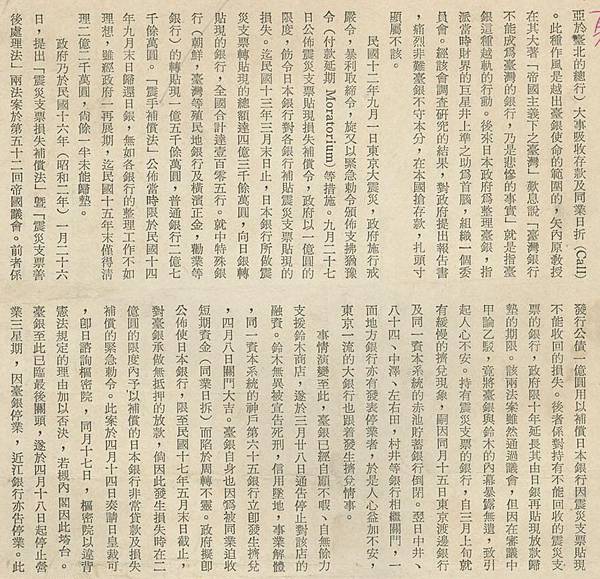 亞於臺北的總行）大事吸收存款及同業日折（Call）
。此種作風是越出臺銀使命的範圍的，矢內原教授
在其大著「帝國主義下之臺灣」歎息說「臺灣銀行
不能成為臺灣的銀行，乃是悲慘的事實」就是指臺
銀這種越軌的行動。後來日本政府為整理臺銀，指
派當時財界的巨星井上準之助為首腦，組織一個委
員會。經該會調查研究的結果，對政府提出報告書
，痛烈非難臺銀不守本分，在本國搶存款，扎頭寸
顯屬不該。
民國十二年九月一日東京大震災，政府施行戒
嚴令，暴利取締令，旋又以緊急勅令頒佈支拂猶豫
令（付款延期 Moratorium）等措施。九月二十七
日公佈震災支票貼現損失補償令，政府以一億圓的
限度，飭令日本銀行對各銀行補貼震災支票貼現的
損失。迄民國十三年三月末日止，日本銀行所做震
災支票轉貼現的總額達四億三千餘萬圓，向日銀轉
貼現的銀行，全國合計達壹百零五行。就中特殊銀
行（朝鮮，臺灣等殖民地銀行及橫濱正金，勸業等
銀行）的轉貼現一億五千餘萬圓，普通銀行二億七
千餘萬圓。「震手補償法」公佈當時限於民國十四
年九月末日歸還日銀，無如各銀行的整理工作不如
理想，雖經政府一再展期，迄民國十五年末僅得清
理二億二千萬圓，尙餘一半未能歸墊。
政府乃於民國十六年（昭和二年）一月二十六
日，提出「震災支票損失補償法」曁「震災支票善
後處理法」兩法案於第五十二回帝國議會。前者係
發行公債一億圓用以補償日本銀行因震災支票貼現
不能收回的損失。後者係對持有不能收回的震災支
票的銀行，政府限十年延長其由日銀再貼現放款歸
墊的期限。該兩法案雖然通過議會，但因在審議中
甲論乙駁，竟將臺銀與鈴木的內幕暴露無遺，致引
起人心不安。持有震災支票的銀行，自三月上旬就
有緩慢的擠兌現象，嗣因同月十五日東京渡邊銀行
及同一資本系統的赤池貯蓄銀行倒閉。翌日中井、
八十四、中澤、左右田，村井等銀行相繼關門，一
面地方銀行亦有發表停業者，於是人心益加不安，
東京一流的大銀行也跟着發生擠兌情事。
事情演變至此，臺銀已經自顧不暇、自無餘力
支援鈴木商店，遂於三月廿八日通告停止對該店的
融資。鈴木無異被宣告死刑，信用墜地，事業解體
，同一資本系統的神戶第六十五銀行立卽發生擠兌
，四月八日關門大吉。臺銀自身也因爲被同業追收
短期資金（同業日折）而陷於周轉不靈。政府擬卽
公佈使日本銀行，限至民國十七年五月末日截止，
對臺銀承做無抵押的放款，倘因此發生損失時在二
億圓的限度內予以補償的日本銀行非常貸款及損失
補償的緊急勅令。此案於四月十四日奏請日皇裁可
，卽日諮詢樞密院，同月十七日，樞密院以違背
憲法規定的理由加以否決，若槻內閣因此垮台。
臺銀至此已臨最後關頭，遂於四月十八日起停止營
業三星期，因臺銀停業，近江銀行亦告停業。此